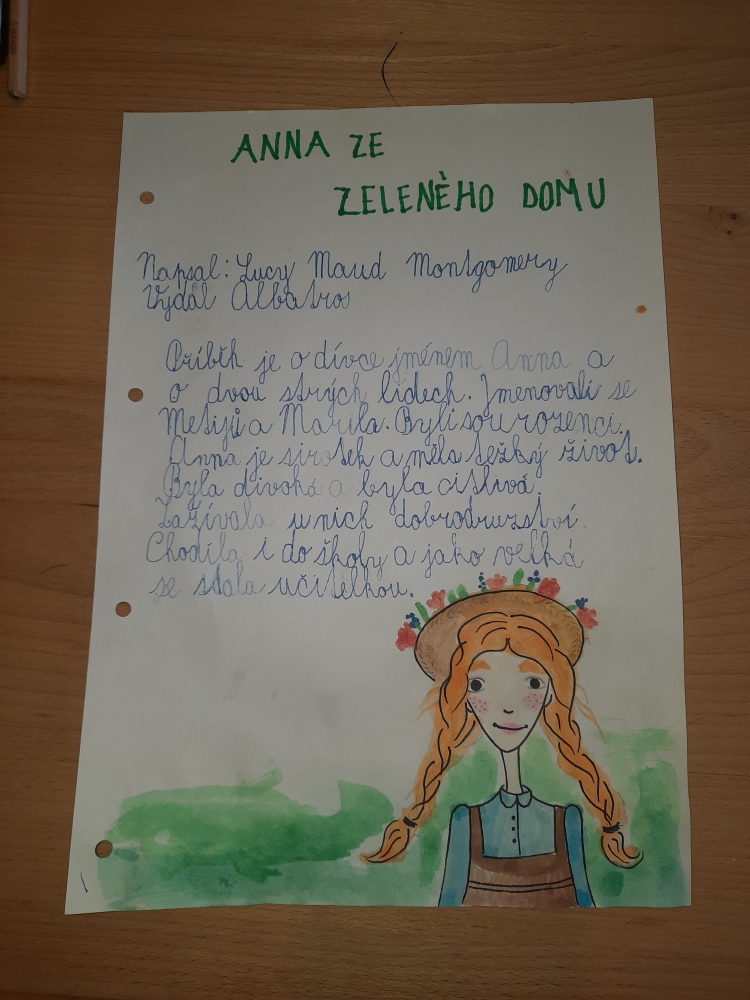 ANNA ZE
ZELENÈHO DOMU
Napsal: Lucy Maud Montgomery
Vydal Albatros
Příběh je o dívce jménem Anna a
o dvou strých lidech. Jmenovali se
Metijů a Marila. Byli sourozenci.
Anna je sirotek a měla težký život.
Byla divoká a byla citlivá.
Zažívala u nich dobrodruzství.
Chodila i do školy a jako velká
se stala učitelkou.